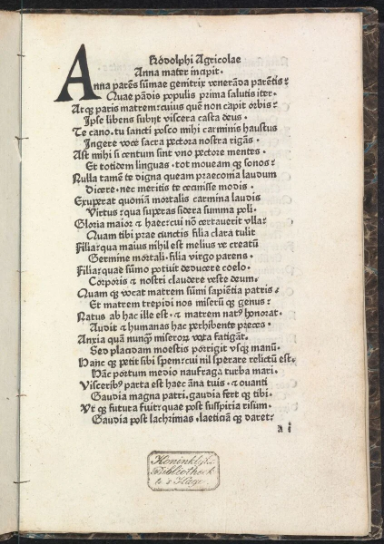 Rodolphi Agricolae
Anna mater incipit.
Anna parẽs sũmae genitrix venerãda parẽtis:
Quae pãdis populis prima salutis iter.
Atq̃ paris matrem: cuius quẽ non capit orbis:
Ipse libens subijt viscera casta deus.
Te cano. tu sancti posco mihi carminis haustus
Ingere voce sacra pectora nostra rigãs.
Ast mihi si centum sint vno pectore mentes.
Et totidem linguas. tot moueam q̃ sonos:
Nulla tamẽ te digna queam praeconia laudum
Dicere. nec meritis te cecinisse modis.
Exuperat quoniã mortalis carmina laudis
Virtus: qua superas sidera summa poli.
Gloria maior & haec: cui nõ certauerit vlla:
Quam tibi prae cunctis filia clara tulit
Filia: qua maius nihil est melius ve creatũ
Germine mortali. filia virgo parens.
Filia: quae sũmo potuit deducere coelo.
Corporis & nostri claudere veste deum.
Quam q̃ vocat matrem sũmi sapiẽtia patris:
Et matrem trepidi nos miserũ q̃ genus:
Natus ab hac ille est. & matrem nat⁹ honorat.
Audit & humanas hac perhibente preces.
Anxia quã nunq̃ miseror̃ vota fatigãt.
Sed placidam moestis porrigit vsq̃ manũ.
Hanc q̃ petit sibi spem: cui nil sperare relictũ est.
Hãc portum medio naufraga turba mari.
Viscerib⁹ parta est haec ãna tuis. & ouanti
Gaudia magna patri. gaudia fert q̃ tibi.
Vt q̃ futura fuit: quae post suspiria risum.
Gaudia post lachrimas. laeticiã q̃ daret:
a i
Koninklijke
Bibliotheek
te 's Hage.